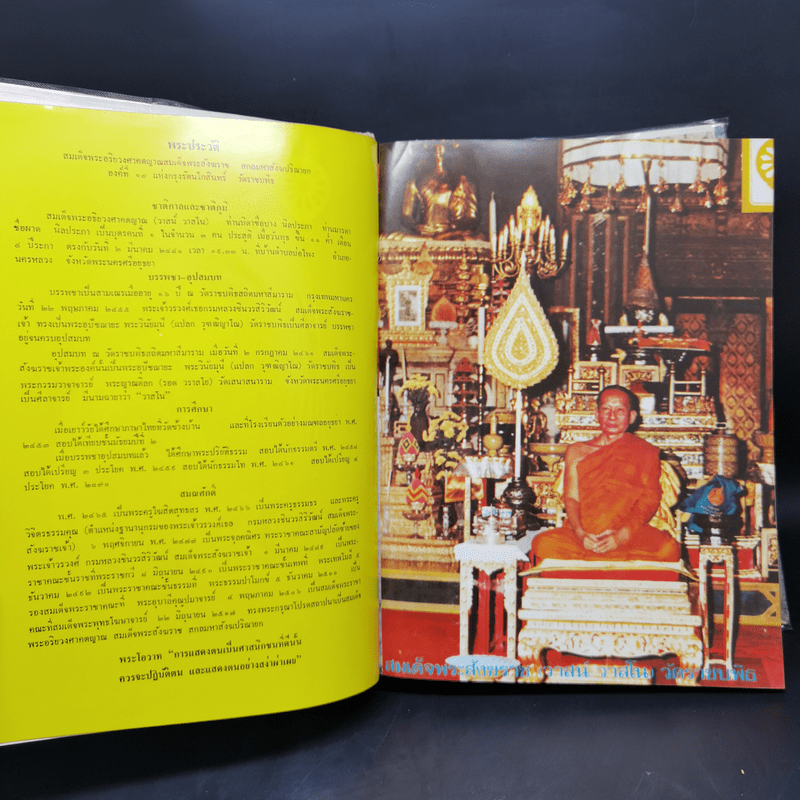 พระประวัติ
สมเด็จพระอริยวงศาคตญาณสมเด็จพระสังฆราช สกลมหาสังฆปริณายก
องค์ที่ ๑๘ แห่งกรุงรัตนโกสินทร์ วัดราชบพิธ
ชาติกาลและชาติภูมิ
สมเด็จพระอริยวงศาคตญาณ (วาสน์ วาสโน) ท่านบิดาชื่อบาง นิลประภา ท่านมารดา
ชื่อผาด นิลประภา เป็นบุตรคนที่ ๑ ในจำนวน ๓ คน ประสูติ เมื่อวันพุธ ขึ้น ๑๑ ค่ำ เดือน
๔ ปีระกา ตรงกับวันที่ ๒ มีนาคม ๒๔๔๑ เวลา ๑๙.๓๓ น. ที่บ้านตำบลบ่อโพง อำเภอ-
นครหลวง จังหวัดพระนครศรีอยุธยา
บรรพชา-อุปสมบท
บรรพชาเป็นสามเณรเมื่ออายุ ๑๖ ปี ณ วัดราชบพิธสถิตมหาสีมาราม กรุงเทพมหานคร
วันที่ ๒๒ พฤษภาคม ๒๔๕๕ พระเจ้าวรวงศ์เธอกรมหลวงชินวรสิริวัฒน์ สมเด็จพระสังฆราช-
เจ้า ทรงเป็นพระอุปัชฌายะ พระวินัยมุนี (แปลก วุฑฺฒิญาโณ) วัดราชบพิธเป็นศีลาจารย์ บรรพชา
อยู่จนครบอุปสมบท
อุปสมบท ณ วัดราชบพิธสถิตมหาสีมาราม เมื่อวันที่ ๒ กรกฎาคม ๒๔๖๑ สมเด็จพระ-
สังฆราชเจ้าพระองค์นั้นเป็นพระอุปัชฌายะ พระวินัยมุนี (แปลก วุฑฺฒิญาโณ) วัดราชบพิธ เป็น
พระกรรมวาจาจารย์ พระญาณดิลก (รอด วราสโย) วัดเสนาสนาราม จังหวัดพระนครศรีอยุธยา
เป็นศีลาจารย์ มีนามฉายาว่า "วาสโน"
การศึกษา
เมื่อเยาว์วัยได้ศึกษาภาษาไทยที่วัดข้างบ้าน และที่โรงเรียนตัวอย่างมณฑลอยุธยา พ.ศ.
๒๔๕๓ สอบไล่ได้เทียบชั้นมัธยมปีที่ ๒
เมื่อบรรพชาอุปสมบทแล้ว ได้ศึกษาพระปริยัติธรรม สอบได้นักธรรมตรี พ.ศ. ๒๔๕๘
สอบได้เปรียญ ๓ ประโยค พ.ศ. ๒๔๕๙ สอบได้นักธรรมโท พ.ศ. ๒๔๖๑ สอบได้เปรียญ ๔
ประโยค พ.ศ. ๒๔๗๐
สมณศักดิ์
พ.ศ. ๒๔๖๕ เป็นพระครูโฆสิตสุทธสร พ.ศ. ๒๔๖๖ เป็นพระครูธรรมธร และพระครู
วิจิตรธรรมคุณ (ตำแหน่งฐานานุกรมของพระเจ้าวรวงศ์เธอ กรมหลวงชินวรสิริวัฒน์ สมเด็จพระ-
สังฆราชเจ้า) ๖ พฤศจิกายน พ.ศ. ๒๔๗๗ เป็นพระจุลคณิศร พระราชาคณะสามัญปลัดซ้ายของ
พระเจ้าวรวงศ์ กรมหลวงชินวรสิริวัฒน์ สมเด็จพระสังฆราชเจ้า ๑ มีนาคม ๒๔๘๙ เป็นพระ
ราชาคณะชั้นราชที่พระราชกวี ๘ มิถุนายน ๒๔๙๐ เป็นพระราชาคณะชั้นเทพที่ พระเทพโมลี ๕
ธันวาคม ๒๔๙๒ เป็นพระราชาคณะชั้นธรรมที่ พระธรรมปาโมกข์ ๕ ธันวาคม ๒๕๐๐ เป็น
รองสมเด็จพระราชาคณะที่ พระอุบาลีคุณูปมาจารย์ ๔ พฤษภาคม ๒๕๐๖ เป็นสมเด็จพระราชา
คณะที่สมเด็จพระพุทธโฆษาจารย์ ๒๒ มิถุนายน ๒๕๑๗ ทรงพระกรุณาโปรดสถาปนาเป็นสมเด็จ
พระอริยวงศาคตญาณ สมเด็จพระสังฆราช สกลมหาสังฆปริณายก
พระโอวาท "การแสดงตนเป็นศาสนิกชนที่ดีนั้น
ควรจะปฏิบัติตน และแสดงตนอย่างสง่าผ่าเผย"
สมเด็จพระสังฆราช (วาสน์ วาสโน) วัดราชบพิธ